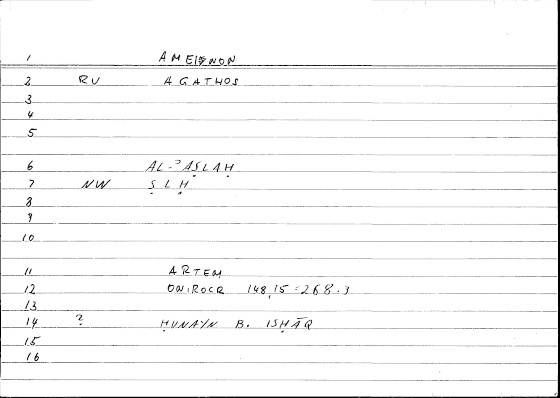 1 AMEINON
2 RU AGATHOS
3
4
5
6 AL-ʾAṢLAḤ
7 NW Ṣ L Ḥ
8
9
10
11 ARTEM
12 ONIROCR 148,15 = 268.3
13
14 ? ḤUNAYN B. ISḤĀQ
15
16